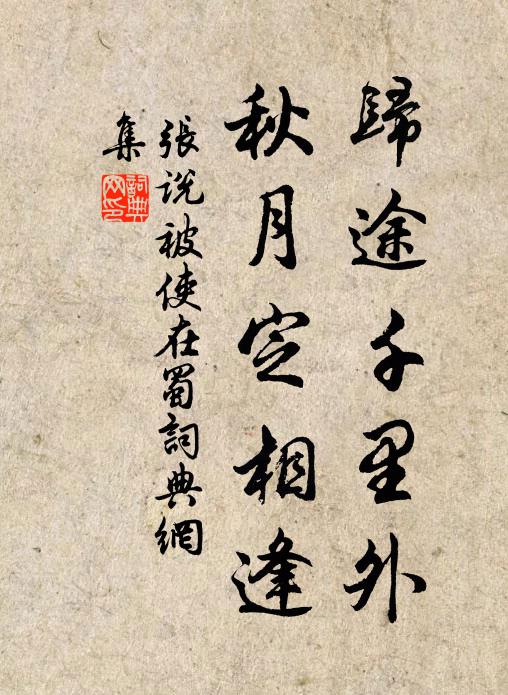 歸途千里外
秋月定相逢
張説被使在蜀詞典網
集
詞典
网印